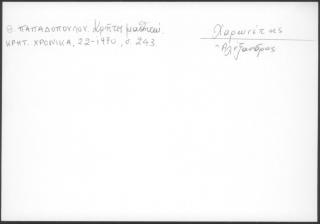 Θ. ΠΑΠΑΔΟΠΟΥΛΟΥ. Κρῆτες μαθηταί
ΚΡΗΤ. ΧΡΟΝΙΚΑ, 22-1970, σ. 243.
Χαρωνίτης
Ἀλέξανδρος